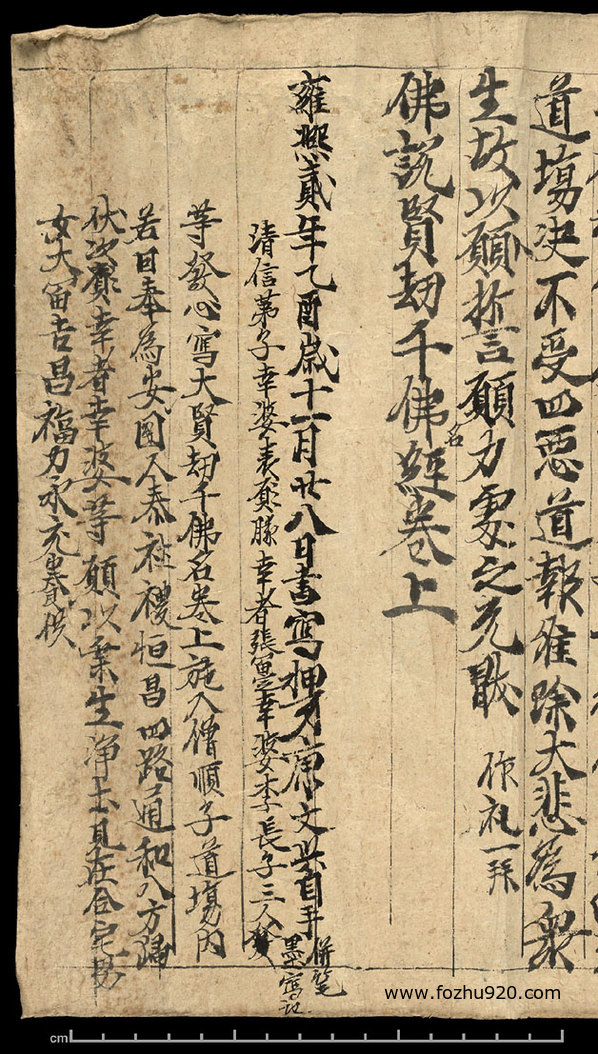 道塲决不受四惡道報唯除大悲為衆
生故以願扵言願力處之充敵 作礼一拜
佛說賢劫千佛名經卷上
雍熙貳年乙酉歲十一月廿八日書寫押牙康文興自手併筆墨寫記
清信弟子幸婆袁願勝幸者張富幸婆李長子三人等
等發心寫大賢劫千佛名卷上施入僧順子道塲內
若日奉為安國人泰社稷恒昌四路通和八方歸
伏次願幸者幸婆等願以業生淨土見在合宅男
女大富吉昌福力永充供養
www.fozhu920.com
cm